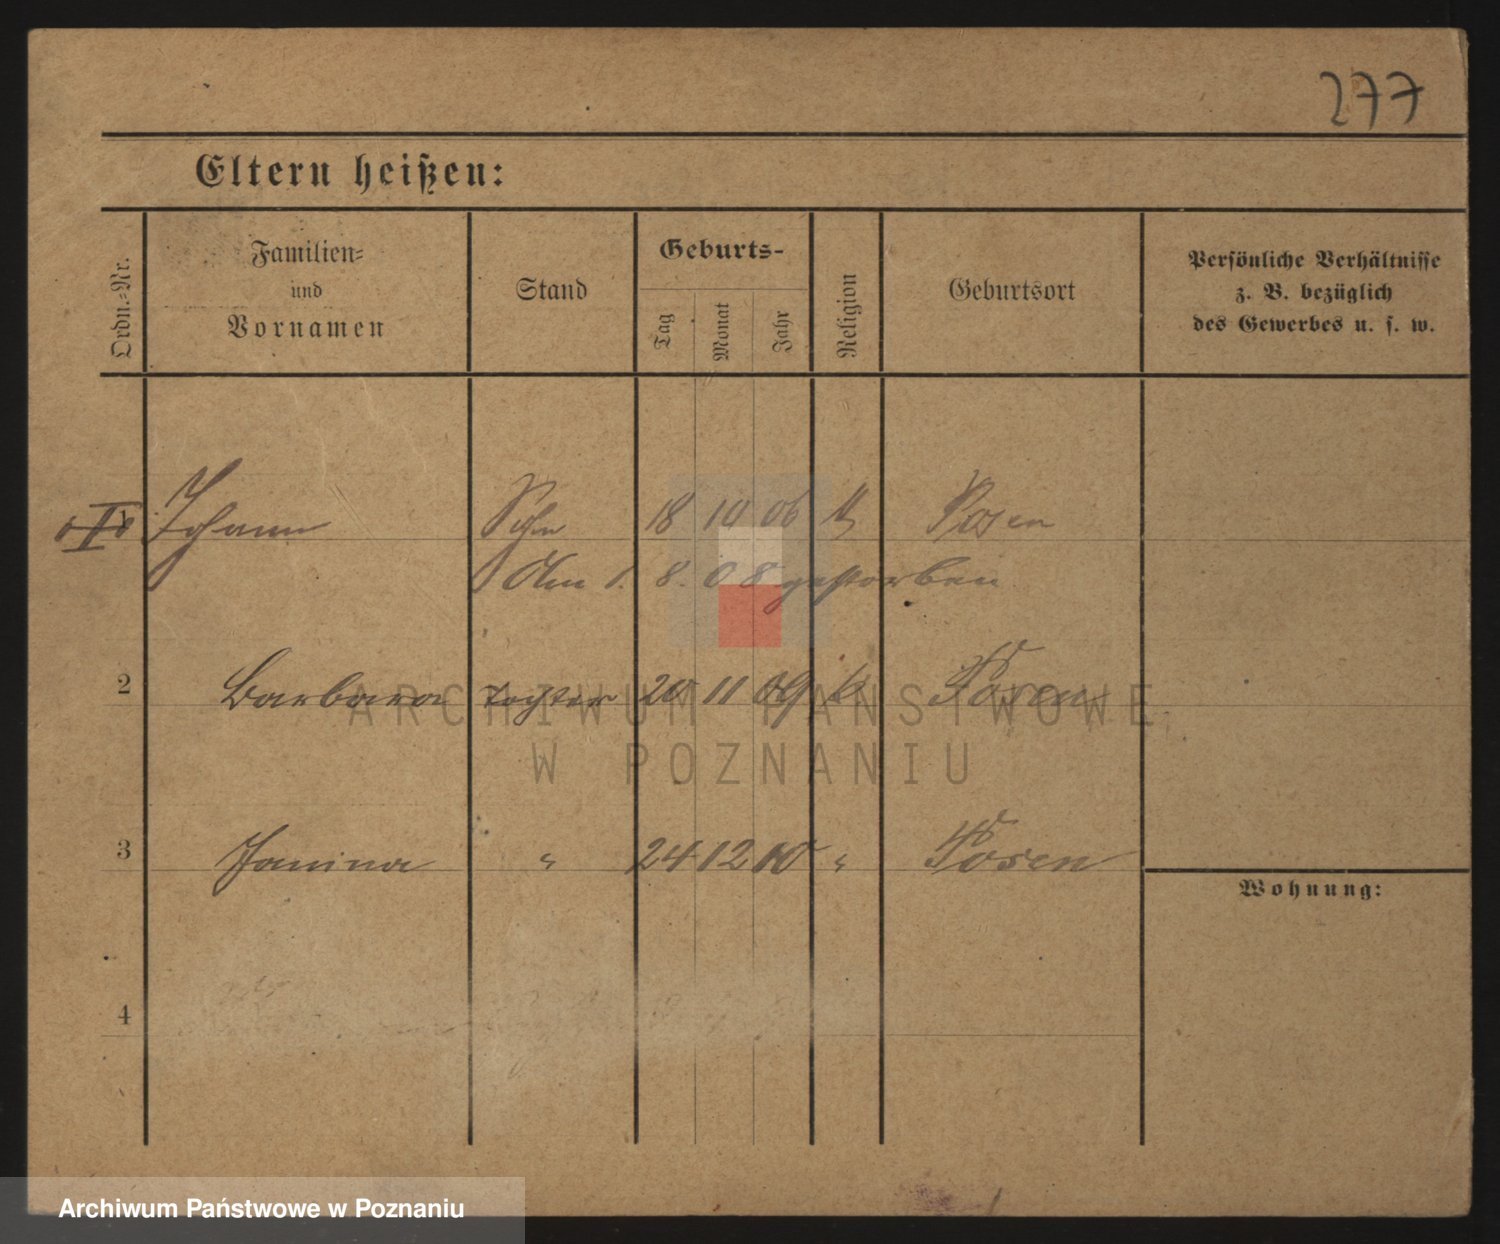 277
Eltern heißen:
Ordn.-Nr.
Familien-
und
Vornamen
Stand
Geburts-
Tag
Monat
Jahr
Religion
Geburtsort
Persönliche Verhältnisse
z. B. bezüglich
des Gewerbes u. s. w.
Johann Sohn 18 10 06 k Posen
Am 1. 8. 08 gestorben
2 Barbara Tochter 20 11 09 k Posen
3 Janina " 24 12 10 " Posen
Wohnung:
4
ARCHIWUM PAŃSTWOWE
W POZNANIU
Archiwum Państwowe w Poznaniu